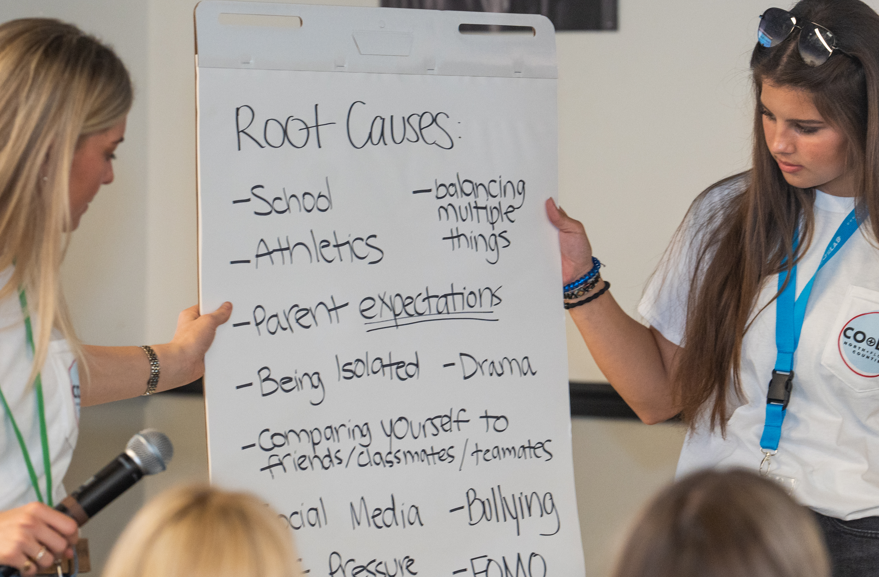 Root Causes:
-School
-balancing
multiple
things
-Athletics
-Parent expectations
-Being Isolated -Drama
-comparing yourself to
friends/classmates/teamates
Media -Bullying
Pressure -FOMO